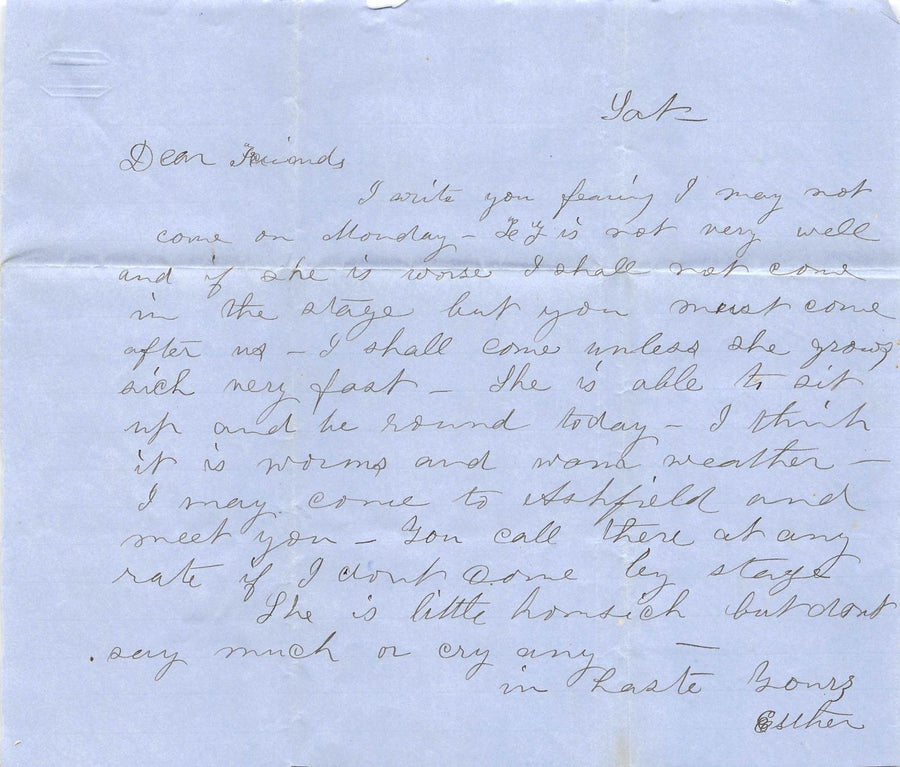 Sat –
Dear Friends
I write you fearing I may not
come on Monday – is not very well
and if she is worse I shall not come
in the stage but you must come
after us – I shall come unless she grows
sick very fast – She is able to sit
up and be round today – I think
it is worms and warm weather –
I may come to Ashfield and
meet you – You call there at any
rate if I dont come by stage
She is little homsick but dont
say much or cry any –
in haste Yours
Esther